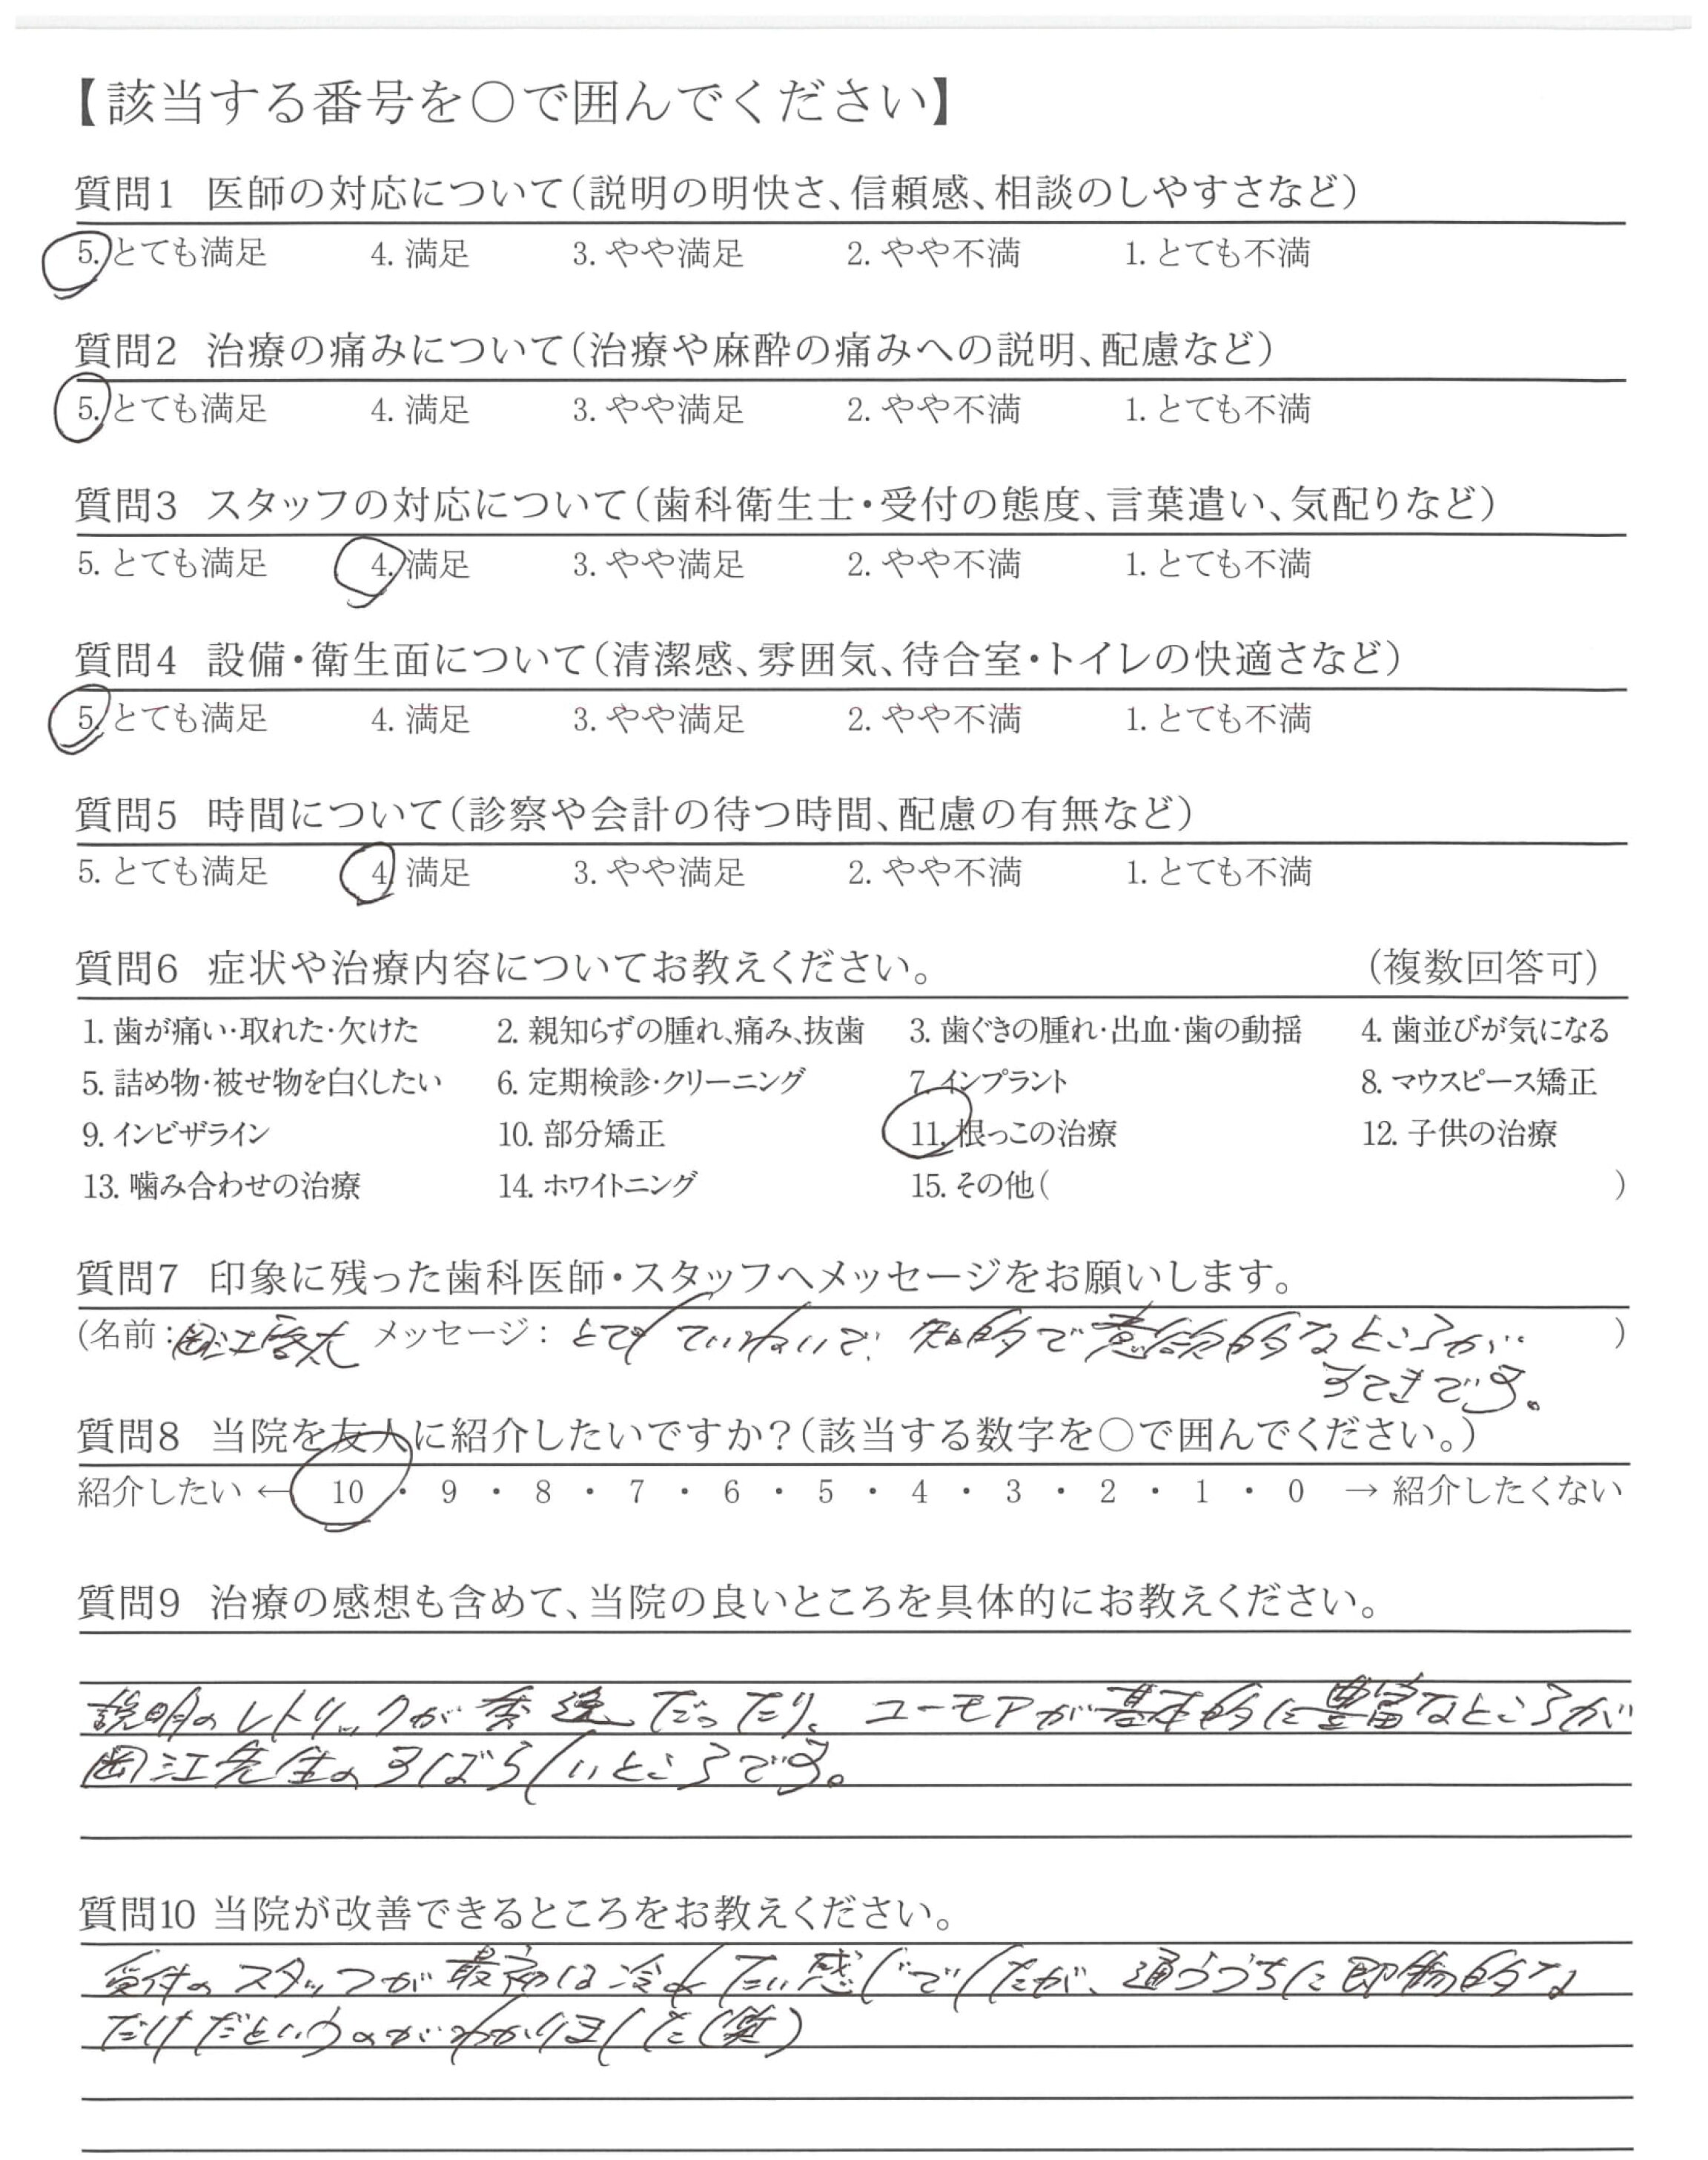 【該当する番号を○で囲んでください】
質問1 医師の対応について(説明の明快さ、信頼感、相談のしやすさなど)
5. とても満足 4. 満足 3. やや満足 2. やや不満 1. とても不満
質問2 治療の痛みについて(治療や麻酔の痛みへの説明、配慮など)
5. とても満足 4. 満足 3. やや満足 2. やや不満 1. とても不満
質問3 スタッフの対応について(歯科衛生士・受付の態度、言葉遣い、気配りなど)
5. とても満足 4. 満足 3. やや満足 2. やや不満 1. とても不満
質問4 設備・衛生面について(清潔感、雰囲気、待合室・トイレの快適さなど)
5. とても満足 4. 満足 3. やや満足 2. やや不満 1. とても不満
質問5 時間について(診察や会計の待つ時間、配慮の有無など)
5. とても満足 4. 満足 3. やや満足 2. やや不満 1. とても不満
質問6 症状や治療内容についてお教えください。 (複数回答可)
1. 歯が痛い・取れた・欠けた 2. 親知らずの腫れ、痛み、抜歯 3. 歯ぐきの腫れ・出血・歯の動揺 4. 歯並びが気になる
5. 詰め物・被せ物を白くしたい 6. 定期検診・クリーニング 7. インプラント 8. マウスピース矯正
9. インビザライン 10. 部分矯正 11. 根っこの治療 12. 子供の治療
13. 噛み合わせの治療 14. ホワイトニング 15. その他( )
質問7 印象に残った歯科医師・スタッフへメッセージをお願いします。
(名前: 岡江 メッセージ: とてもていねいで、知的で意欲的なところが )
すてきです。
質問8 当院を友人に紹介したいですか?(該当する数字を○で囲んでください。)
紹介したい ← 10 ・ 9 ・ 8 ・ 7 ・ 6 ・ 5 ・ 4 ・ 3 ・ 2 ・ 1 ・ 0 → 紹介したくない
質問9 治療の感想も含めて、当院の良いところを具体的にお教えください。
説明のレトリックが秀逸だったり、ユーモアが基本的に豊富なところが
岡江先生のすばらしいところです。
質問10 当院が改善できるところをお教えください。
受付のスタッフが最初は冷めたい感じでしたが、通ううちに即物的な
だけだというのがわかりました(笑)